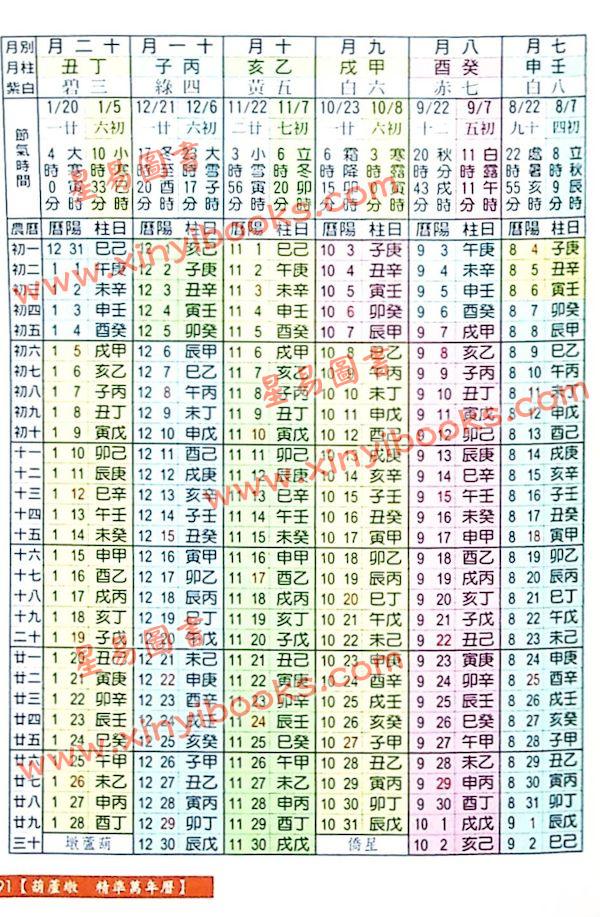 月別 月二十 月一十 月十 月九 月八 月七
月柱 丑丁 子丙 亥乙 戌甲 酉癸 申壬
紫白 碧三 綠四 黃五 白六 赤七 白八
1/20 1/5 12/21 12/6 11/22 11/7 10/23 10/8 9/22 9/7 8/22 8/7
一廿 六初 一廿 六初 二廿 七初 一廿 六初 二十 五初 九十 四初
節氣時間
農曆 曆陽 柱日 曆陽 柱日 曆陽 柱日 曆陽 柱日 曆陽 柱日 曆陽 柱日
初一 12 31 巳己 12 1 亥己 11 1 巳己 10 3 子庚 9 3 午庚 8 4 子庚
初二 1 1 午庚 12 2 子庚 11 2 午庚 10 4 丑辛 9 4 未辛 8 5 丑辛
初三 1 2 未辛 12 3 丑辛 11 3 未辛 10 5 寅壬 9 5 申壬 8 6 寅壬
初四 1 3 申壬 12 4 寅壬 11 4 申壬 10 6 卯癸 9 6 酉癸 8 7 卯癸
初五 1 4 酉癸 12 5 卯癸 11 5 酉癸 10 7 辰甲 9 7 戌甲 8 8 辰甲
初六 1 5 戌甲 12 6 辰甲 11 6 戌甲 10 8 巳乙 9 8 亥乙 8 9 巳乙
初七 1 6 亥乙 12 7 巳乙 11 7 亥乙 10 9 午丙 9 9 子丙 8 10 午丙
初八 1 7 子丙 12 8 午丙 11 8 子丙 10 10 未丁 9 10 丑丁 8 11 未丁
初九 1 8 丑丁 12 9 未丁 11 9 丑丁 10 11 申戊 9 11 寅戊 8 12 申戊
初十 1 9 寅戊 12 10 申戊 11 10 寅戊 10 12 酉己 9 12 卯己 8 13 酉己
十一 1 10 卯己 12 11 酉己 11 11 卯己 10 13 戌庚 9 13 辰庚 8 14 戌庚
十二 1 11 辰庚 12 12 戌庚 11 12 辰庚 10 14 亥辛 9 14 巳辛 8 15 亥辛
十三 1 12 巳辛 12 13 亥辛 11 13 巳辛 10 15 子壬 9 15 午壬 8 16 子壬
十四 1 13 午壬 12 14 子壬 11 14 午壬 10 16 丑癸 9 16 未癸 8 17 丑癸
十五 1 14 未癸 12 15 丑癸 11 15 未癸 10 17 寅甲 9 17 申甲 8 18 寅甲
十六 1 15 申甲 12 16 寅甲 11 16 申甲 10 18 卯乙 9 18 酉乙 8 19 卯乙
十七 1 16 酉乙 12 17 卯乙 11 17 酉乙 10 19 辰丙 9 19 戌丙 8 20 辰丙
十八 1 17 戌丙 12 18 辰丙 11 18 戌丙 10 20 巳丁 9 20 亥丁 8 21 巳丁
十九 1 18 亥丁 12 19 巳丁 11 19 亥丁 10 21 午戊 9 21 子戊 8 22 午戊
二十 1 19 子戊 12 20 午戊 11 20 子戊 10 22 未己 9 22 丑己 8 23 未己
廿一 1 20 丑己 12 21 未己 11 21 丑己 10 23 申庚 9 23 寅庚 8 24 申庚
廿二 1 21 寅庚 12 22 申庚 11 22 寅庚 10 24 酉辛 9 24 卯辛 8 25 酉辛
廿三 1 22 卯辛 12 23 酉辛 11 23 卯辛 10 25 戌壬 9 25 辰壬 8 26 戌壬
廿四 1 23 辰壬 12 24 戌壬 11 24 辰壬 10 26 亥癸 9 26 巳癸 8 27 亥癸
廿五 1 24 巳癸 12 25 亥癸 11 25 巳癸 10 27 子甲 9 27 午甲 8 28 子甲
廿六 1 25 午甲 12 26 子甲 11 26 午甲 10 28 丑乙 9 28 未乙 8 29 丑乙
廿七 1 26 未乙 12 27 丑乙 11 27 未乙 10 29 寅丙 9 29 申丙 8 30 寅丙
廿八 1 27 申丙 12 28 寅丙 11 28 申丙 10 30 卯丁 9 30 酉丁 8 31 卯丁
廿九 1 28 酉丁 12 29 卯丁 11 29 酉丁 10 31 辰戊 10 1 戌戊 9 1 辰戊
三十 墩蘆葫 12 30 辰戊 11 30 戌戊 僑星 10 2 亥己 9 2 巳己
91【葫蘆墩 精準萬年曆】
星易圖書
www.xinyibooks.com
星易圖書
www.xinyibooks.com
星易圖書
www.xinyibooks.com